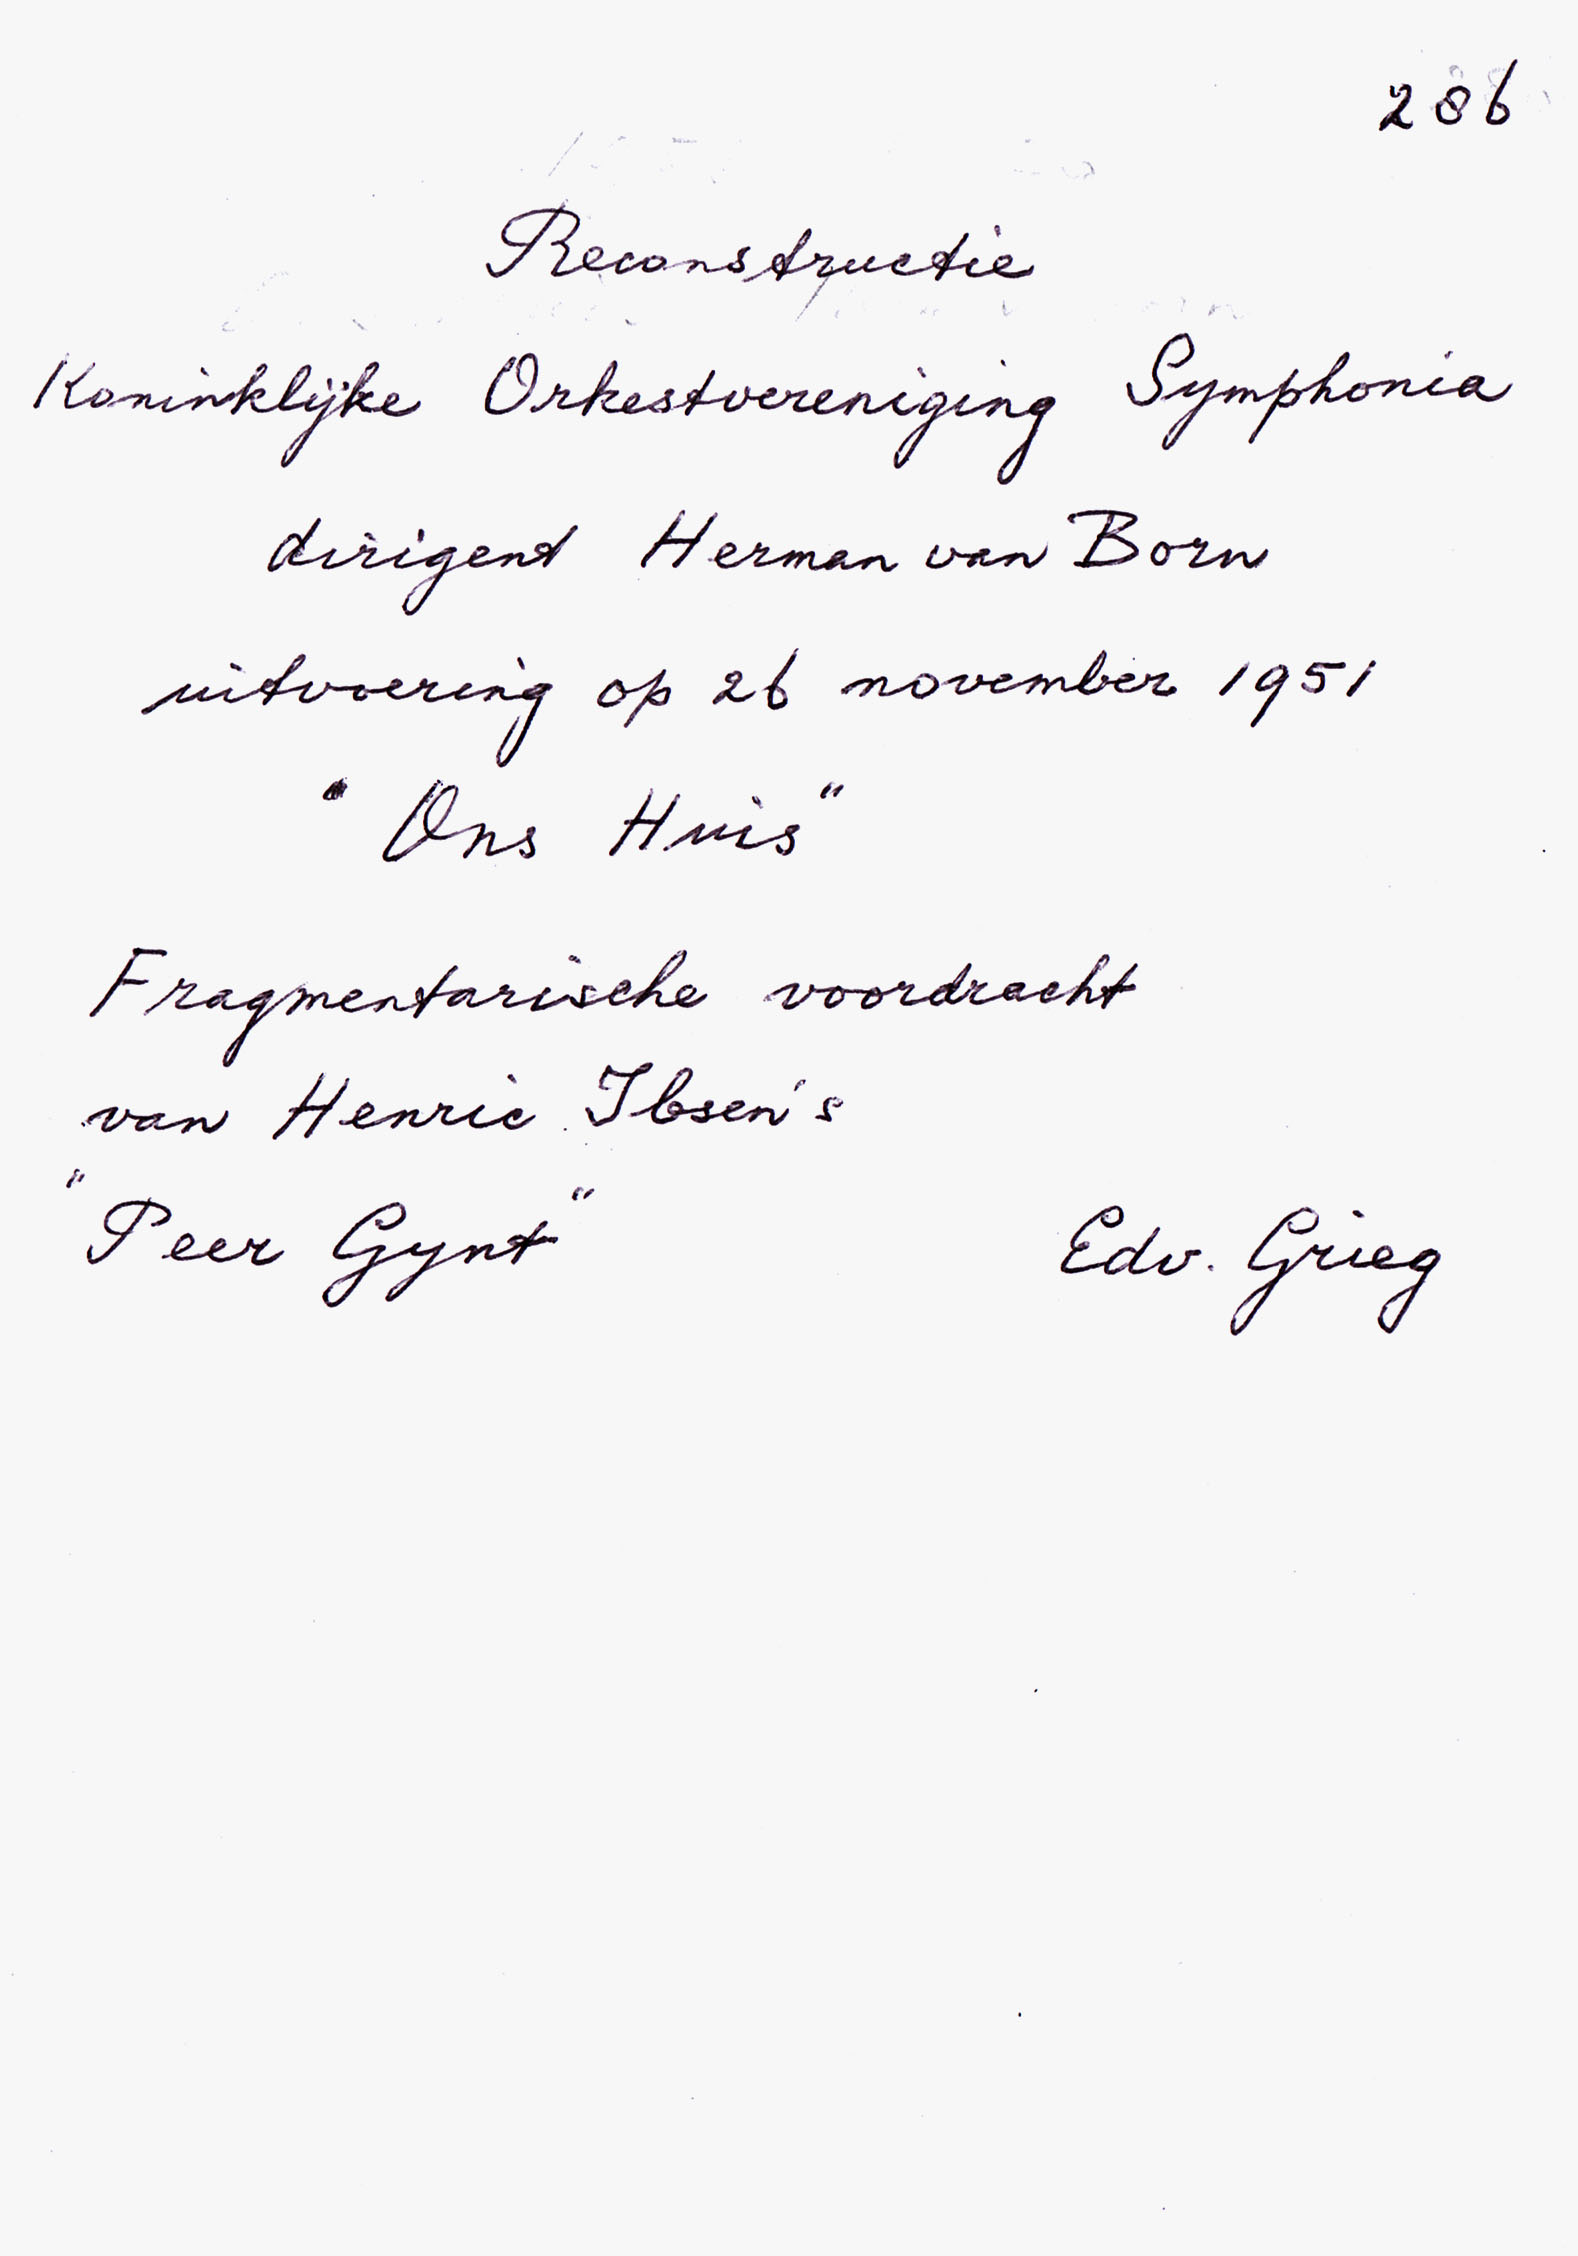 286
Reconstructie
Koninklijke Orkestvereniging Symphonia
dirigent Herman van Born
uitvoering op 26 november 1951
"Ons Huis"
Fragmentarische voordracht
van Henric Ibsen's
"Peer Gynt" Edv. Grieg